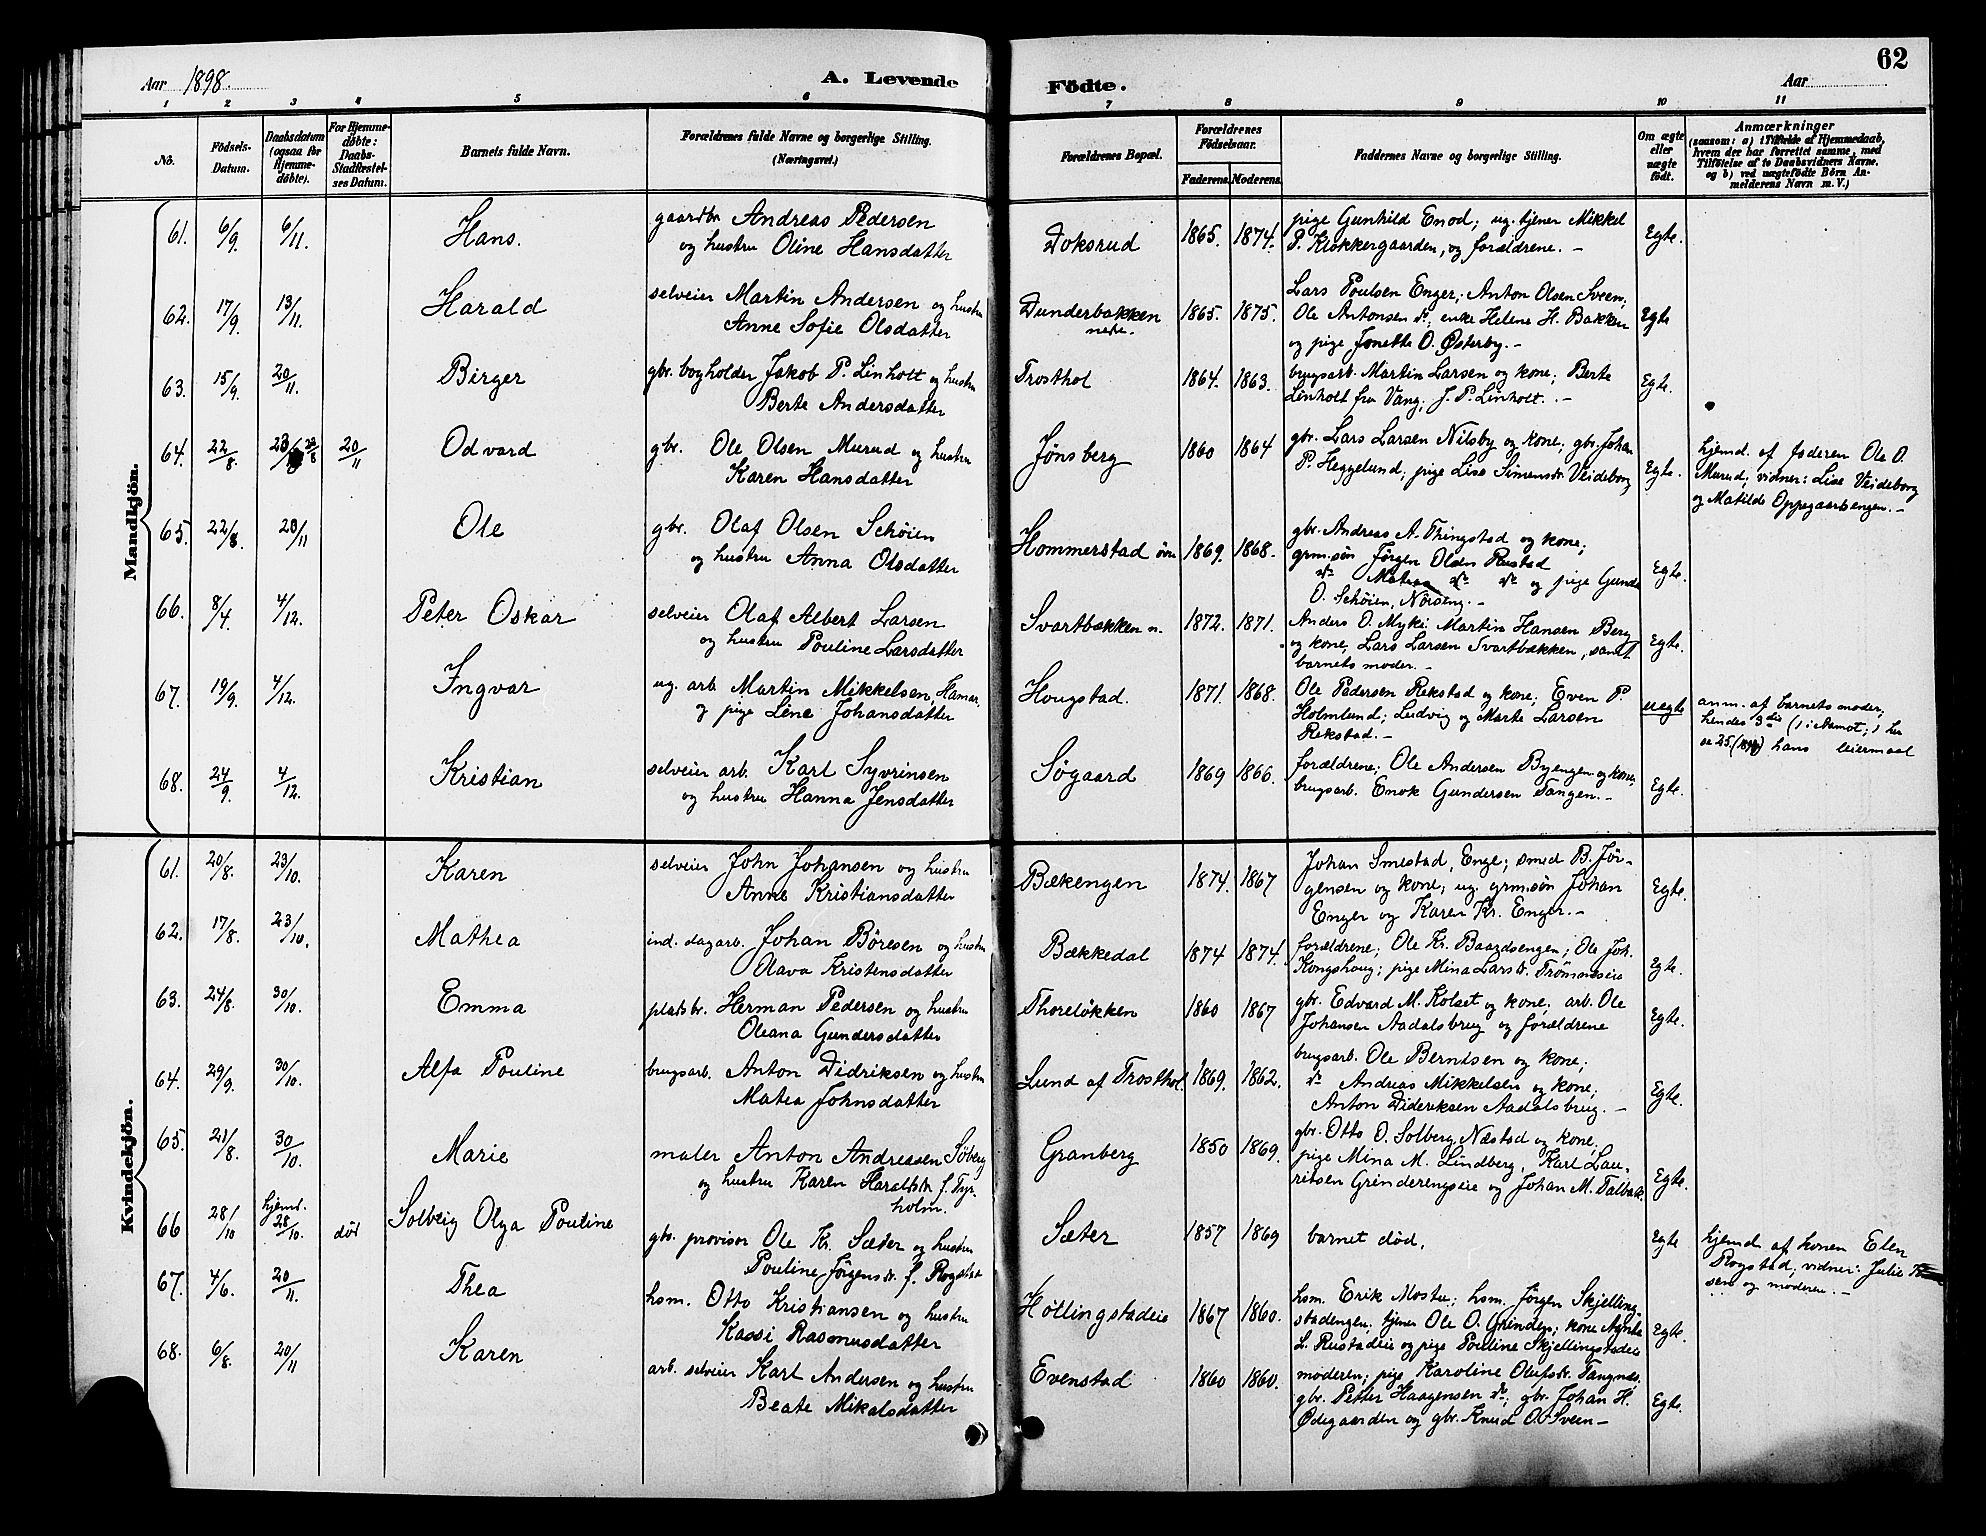 62
Aar 1898.
A. Levende
Födte.
Aar
1 2 3 4 5 6 7 8 9 10 11
No.
Födsels-
Datum.
Daabsdatum
(ogsaa for
Hjemme-
döbte).
For Hjemme-
döbte:
Daabs-
Stadfæstel-
ses Datum.
Barnets fulde Navn.
Forældrenes fulde Navne og borgerlige Stilling.
(Næringsvei.)
Forældrenes Bopæl.
Forældrenes
Födselsaar.
Faderens. Moderens.
Faddernes Navne og borgerlige Stilling.
Om ægte
eller
uægte
födt.
Anmærkninger
(saasom: a) i Tilfælde af Hjemmedaab,
hvem der har forrettet samme, med
Tilföielse af to Daabsvidners Navne.
og b) ved uægtefödte Börn An-
melderens Navn m. V.)
Mandkjön.
61. 6/9. 6/11. Hans.
gaardbr. Andreas Pedersen
og hustru Oline Hansdatter
Doksrud 1865. 1874.
pige Gunhild Enod; ug. tjener Mikkel
P. Klokkergaarden, og forældrene. –
Egte.
62. 17/9. 13/11. Harald
selveier Martin Andersen og hustru
Anne Sofie Olsdatter
Dunderbakken
nedre. 1865. 1875.
Lars Poulsen Enger; Anton Olsen Sveen;
Ole Antonsen do; enke Helene H. Bakken
og pige Jonette O. Østerby. –
Egte
63. 15/9. 20/11. Birger
gbr. bogholder Jakob P. Linholt og hustru
Berte Andersdatter
Trosthol 1864. 1863.
brugsarb. Martin Larsen og kone; Berte
Linholt fra Vang; J. P. Linholt. –
Egte.
64. 22/8. 20/11 Odvard
gbr. Ole Olsen Murud og hustru
Karen Hansdatter
Jønsberg 1860 1864
gbr. Lars Larsen Nilsby og kone; gbr. Johan
P. Heggelund; pige Lise Simensdr. Veideborg
Egte.
hjemd. af faderen Ole O.
Murud; vidner: Lise Veideborg
og Matilde Oppegaardengen. –
65. 22/8. 20/11 Ole
gbr. Olaf Olsen Schøien
og hustru Anna Olsdatter
Hommerstad øvre 1869. 1868.
gbr. Andreas A. Thingstad og kone;
grm.søn Jørgen Olsen Rustad
do Matea do do og pige Gunda
O. Schøien, Nörseng. –
Egte.
66. 8/4. 4/12. Peter Oskar
selveier Olaf Albert Larsen
og hustru Pouline Larsdatter
Svartbækken n. 1872. 1871.
Anders O. Myki Martin Hansen Berg
og kone, Lars Larsen Svartbækken, samt
barnets moder. –
Egte.
67. 19/9. 4/12. Ingvar
ug. arb. Martin Mikkelsen, Hamar,
og pige Line Johansdatter
Hougstad. 1871. 1868.
Ole Pedersen Rekstad og kone; Even P.
Holmlund; Ludvig og Marte Larsen
Rekstad. –
uegte
anm. af barnets moder;
hendes 3die
hans leiermaal
68. 24/9. 4/12. Kristian
selveier arb. Karl Syvrinsen
og hustru Hanna Jensdatter
Søgaard 1869 1866.
forældrene; Ole Andersen Byengen og kone;
brugsarb. Enok Gundersen Tangen. –
Egte.
Kvindekjön.
61. 20/8. 23/10. Karen
selveier John Johansen og hustru
Anne Kristiansdatter
Bækengen 1874. 1867
Johan Smestad, Enge; smed B. Jør-
gensen og kone; ug. grm.søn Johan
Enger og Karen Kr. Enger. –
Egte.
62. 17/8. 23/10. Mathea
ind. dagarb. Johan Børesen og hustru
Olava Kristensdatter
Bækkedal 1874 1874.
forældrene; Ole Kr. Baardsengen; Ole Joh.
Kongshoug; pige Mina Larsdr.
Egte.
63. 24/8. 30/10. Emma
pladsbr. Herman Pedersen og hustru
Oleana Gundersdatter
Thoreløkken 1860 1867
gbr. Edvard M. Kolset og kone; arb. Ole
Johansen Aadalsbrug og forældrene
Egte.
64. 29/9. 30/10. Alfa Pouline
brugsarb. Anton Didriksen og hustru
Matea Johnsdatter
Lund af Trosthol 1869. 1862.
brugsarb. Ole Berntsen og kone;
do Andreas Mikkelsen og kone;
Anton Dideriksen Aadalsbrug. –
Egte.
65. 21/8. 30/10. Marie
maler Anton Andreasen Soberg
og hustru Karen Haraldsdr. f. Tyr-
holm.
Granberg 1850 1869.
gbr. Otto O. Solberg, Næstad og kone;
pige Mina M. Lindberg, Karl Lau-
ritsen Grinderengseie og Johan M. Talbak.
Egte.
66 28/10 hjemd. 28/10. död Solveig Olga Pouline
gbr. provisor Ole Kr. Sæter og hustru
Pouline Jørgensdr. f. Rogstad
Sæter 1857 1869
barnet död.
Egte
hjemd. af konen Elen
Rogstad; vidner: Julie
sen og moderen. –
67. 4/6. 20/11. Thea
hsm. Otto Kristiansen og hustru
Kassi Rasmusdatter
Høllingstadeie 1867 1860.
hsm. Erik Mostu; hsm. Jørgen Skjelling-
stadengen; tjener Ole O. Grinder; kone Agnete
L. Rustadeie og pige Pouline Skjellingstadeie
Egte.
68. 6/8. 20/11 Karen
arb. selveier Karl Andersen og hustru
Beate Mikalsdatter
Evenstad 1860 1860.
moderen; pige Karoline Olufsdr. Tangnes.
gbr. Petter Haagensen do; gbr. Johan H.
Ødegaarden og gbr. Knud O. Sveen –
Egte.